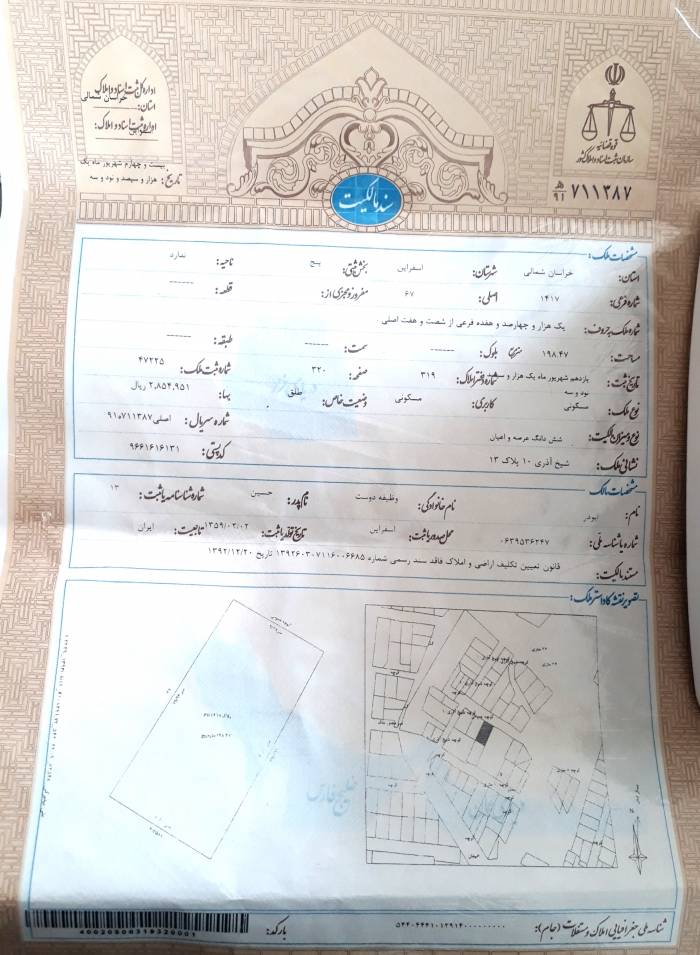 اداره کل ثبت اسناد و املاک
استان: خراسان شمالی
اداره ثبت اسناد و املاک: اسفراین
تاریخ: بیست و چهارم شهریور ماه یک هزار و سیصد و نود و سه
قوه قضائیه
سازمان ثبت اسناد و املاک کشور
۷۱۱۳۸۷ ه‍/۹۱
سند مالکیت
مشخصات ملک:
استان: خراسان شمالی شهرستان: اسفراین بخش ثبتی: پنج ناحیه: ندارد
شماره فرعی: ۱۴۱۷ اصلی: ۶۷ مفروز و مجزی از: قطعه: ------
شماره ملک به حروف: یک هزار و چهارصد و هفده فرعی از شصت و هفت اصلی
مساحت: ۱۹۸.۴۷ مترمربع بلوک: ------ سمت: ------ طبقه: ------
تاریخ ثبت: یازدهم شهریور ماه یک هزار و سیصد و نود و سه شماره دفتر املاک: ۳۱۹ صفحه: ۳۲۰ شماره ثبت ملک: ۴۷۲۲۵
نوع ملک: مسکونی کاربری: مسکونی وضعیت خاص: طلق بها: ۲,۸۵۴,۹۵۱ ریال
نوع و میزان مالکیت: شش دانگ عرصه و اعیان شماره سریال: اصلی ۹۱۰۷۱۱۳۸۷
نشانی ملک: شیخ آذری ۱۰ پلاک ۱۳ کد پستی: ۹۶۶۱۶۱۶۱۳۱
مشخصات مالک:
نام: ابوذر نام خانوادگی: وظیفه دوست نام پدر: حسین شماره شناسنامه یا ثبت: ۱۳
شماره یا شناسه ملی: ۰۶۳۹۵۳۶۲۴۷ محل صدور یا ثبت: اسفراین تاریخ تولد یا ثبت: ۱۳۵۹/۰۲/۰۲ تابعیت: ایران
مستند مالکیت: قانون تعیین تکلیف اراضی و املاک فاقد سند رسمی شماره ۱۳۹۲۶۰۳۰۷۱۱۶۰۰۶۶۸۵ تاریخ ۱۳۹۲/۱۲/۲۰
تصویر نقشه کاداستر ملک:
خلیج فارس
شناسه ملی جغرافیایی املاک و مستغلات (جام):
بارکد:
40020800319320001